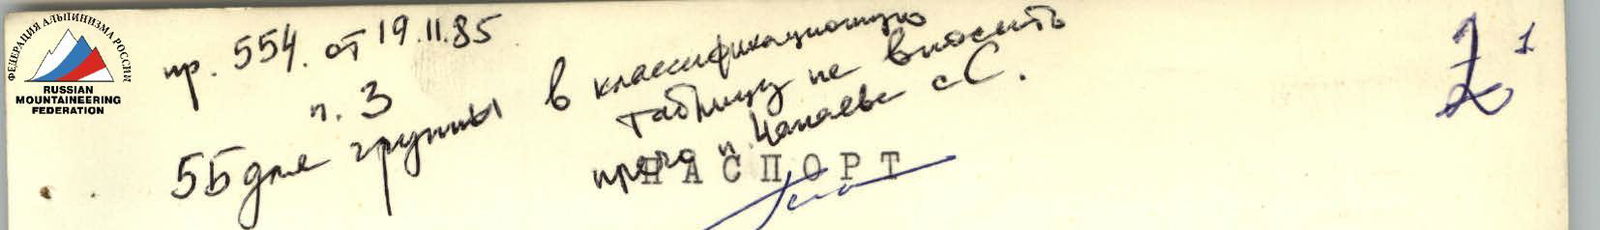 ФЕДЕРАЦИЯ АЛЬПИНИЗМА РОССИИ
RUSSIAN
MOUNTAINEERING
FEDERATION
пр. 554. от 19.11.85
п. 3
5Б для группы
в классификационную
таблицу не вносить
п. Чапаева с С.
ПАСПОРТ
1